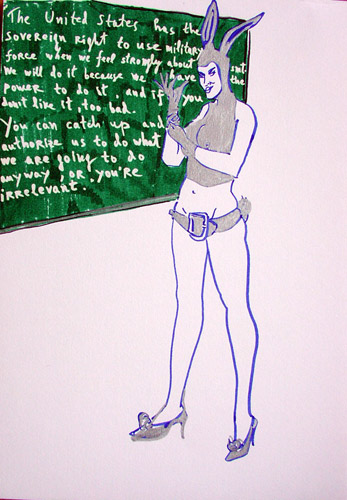 The United States has the
sovereign right to use military
force when we feel strongly about smt
we will do it because we have the
power to do it and if you
don't like it, too bad
You can catch up and
authorize us to do what
we are going to do
anyway, or, you're
irrelevant.